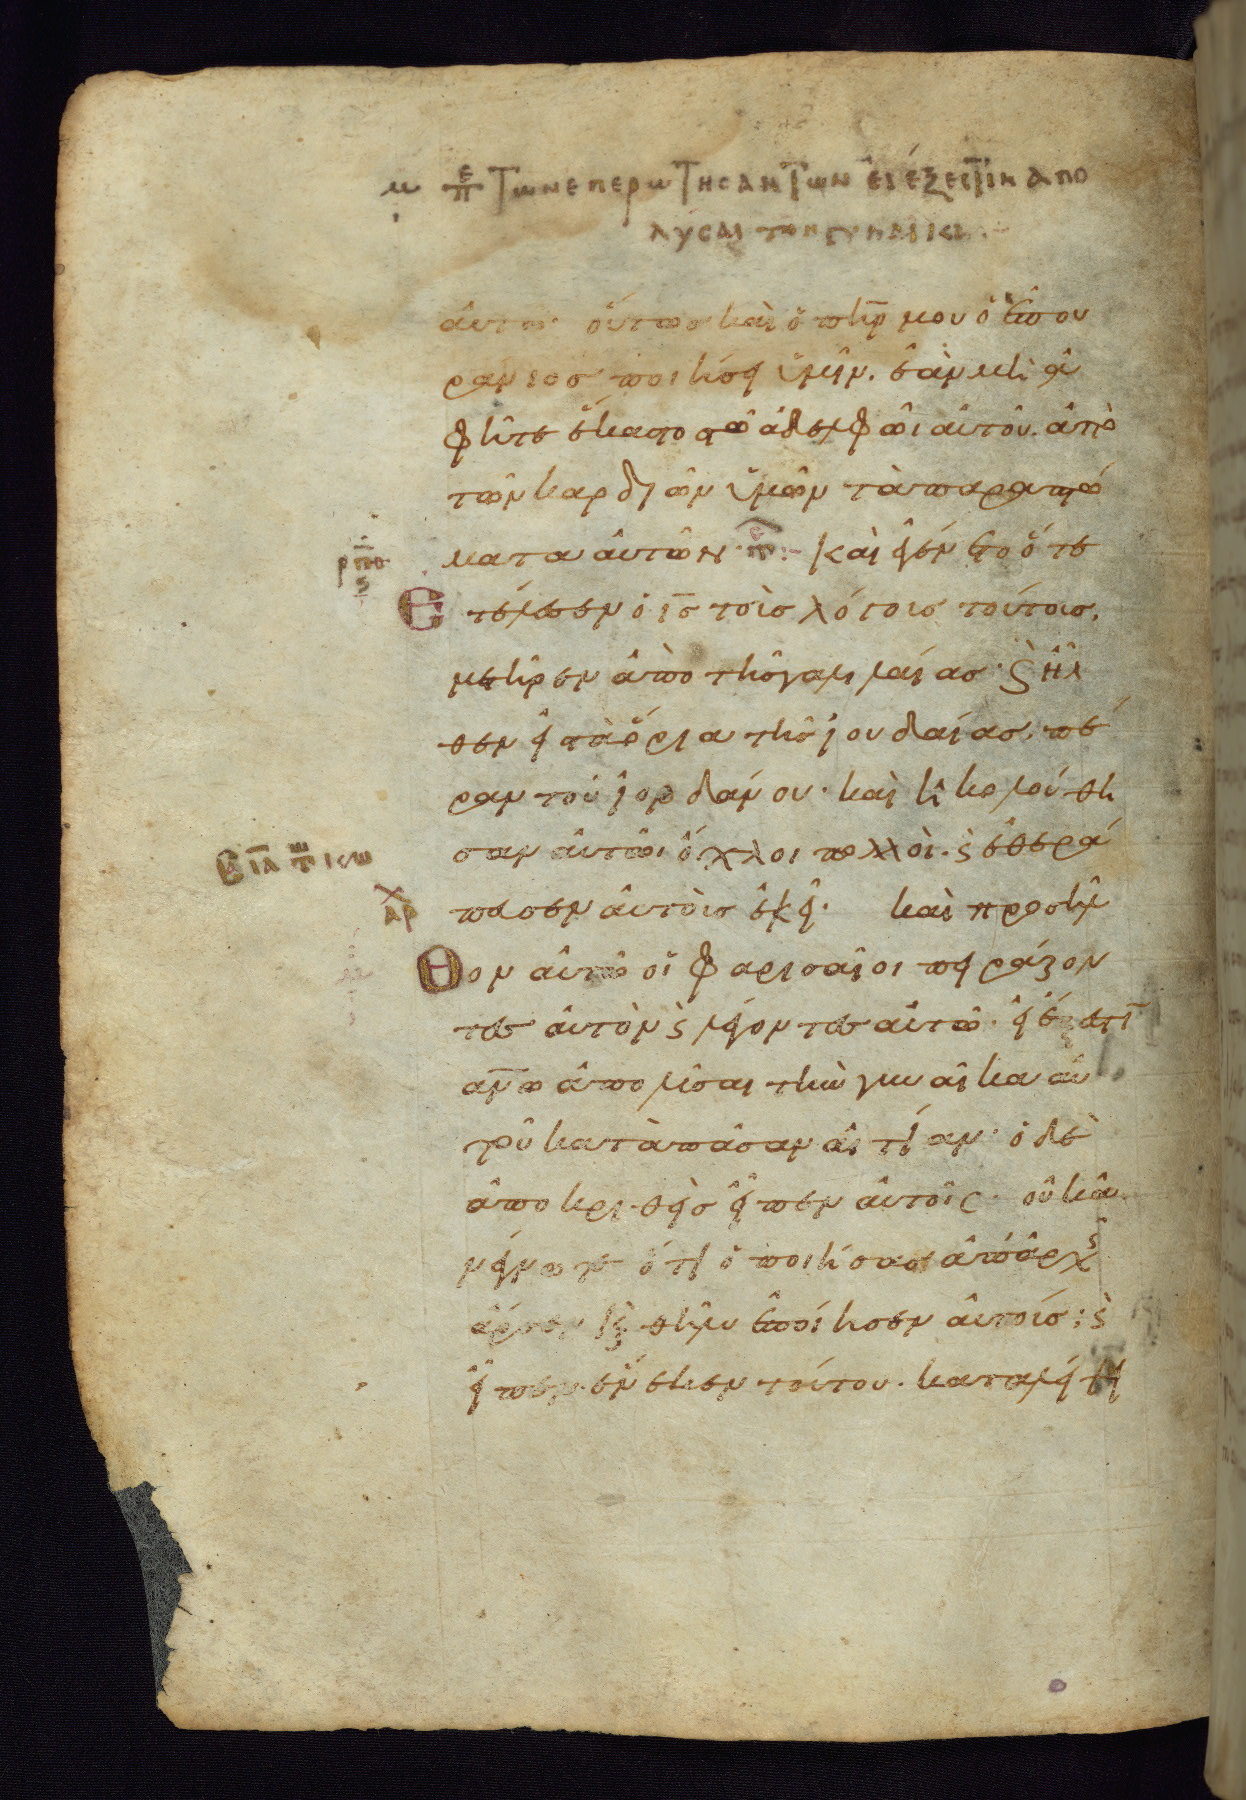 μ πε Των επερωΤησανΤων ει έξεσΤιν απο
λυσαι την γυναικα.
αὐτῶ· οὕτωσ καὶ ὁ πη̅ρ μου ὁ ἐπου
ράνιοσ ποιήσει ὑμῖν. ἐὰν μὴ ἀ
φῆτε ἕκαστοσ τῶ ἀδελφῶι αὐτοῦ. ἀπὸ
τῶν καρδιῶν ὑμῶν τὰ παραπτώ
ματα αὐτῶν· Καὶ ἐγένετο ὅτε
Ετέλεσεν ὁ ι̅σ τοὺσ λόγουσ τούτουσ.
μετῆρεν ἀπὸ τῆσ γαλιλαίασ· ϛ̀ ἦλ
θεν εἰ τὰ ὅρια τῆσ ἰουδαίασ. πέ
ραν τοῦ ἰορδάνου· καὶ ἠκολούθη
σαν αὐτῶι ὄχλοι πολλοὶ. ϛ̀ ἐθερά
πευσεν αὐτοὺσ ἐκεῖ· καὶ προσῆλ
Θον αὐτῶ οἱ φαρισαῖοι πειράζον
τεσ αὐτὸν ϛ̀ λέγοντεσ αὐτῶ· εἰ ἔξεστι
α̅νω ἀπολῦσαι τὴν γυναῖκα αὐ
τοῦ κατὰ πᾶσαν αἰτίαν· ὁ δὲ
ἀποκριθεὶσ εἶπεν αὐτοῖς· οὐκ ἀ
νέγνωτε ὅτι ὁ ποιήσασ ἀπ' ἀρχῆσ
ἄρσεν ϛ̀ θῆλυ ἐποίησεν αὐτούσ; ϛ̀
εἶπεν· ἕνεκεν τούτου. καταλείψει